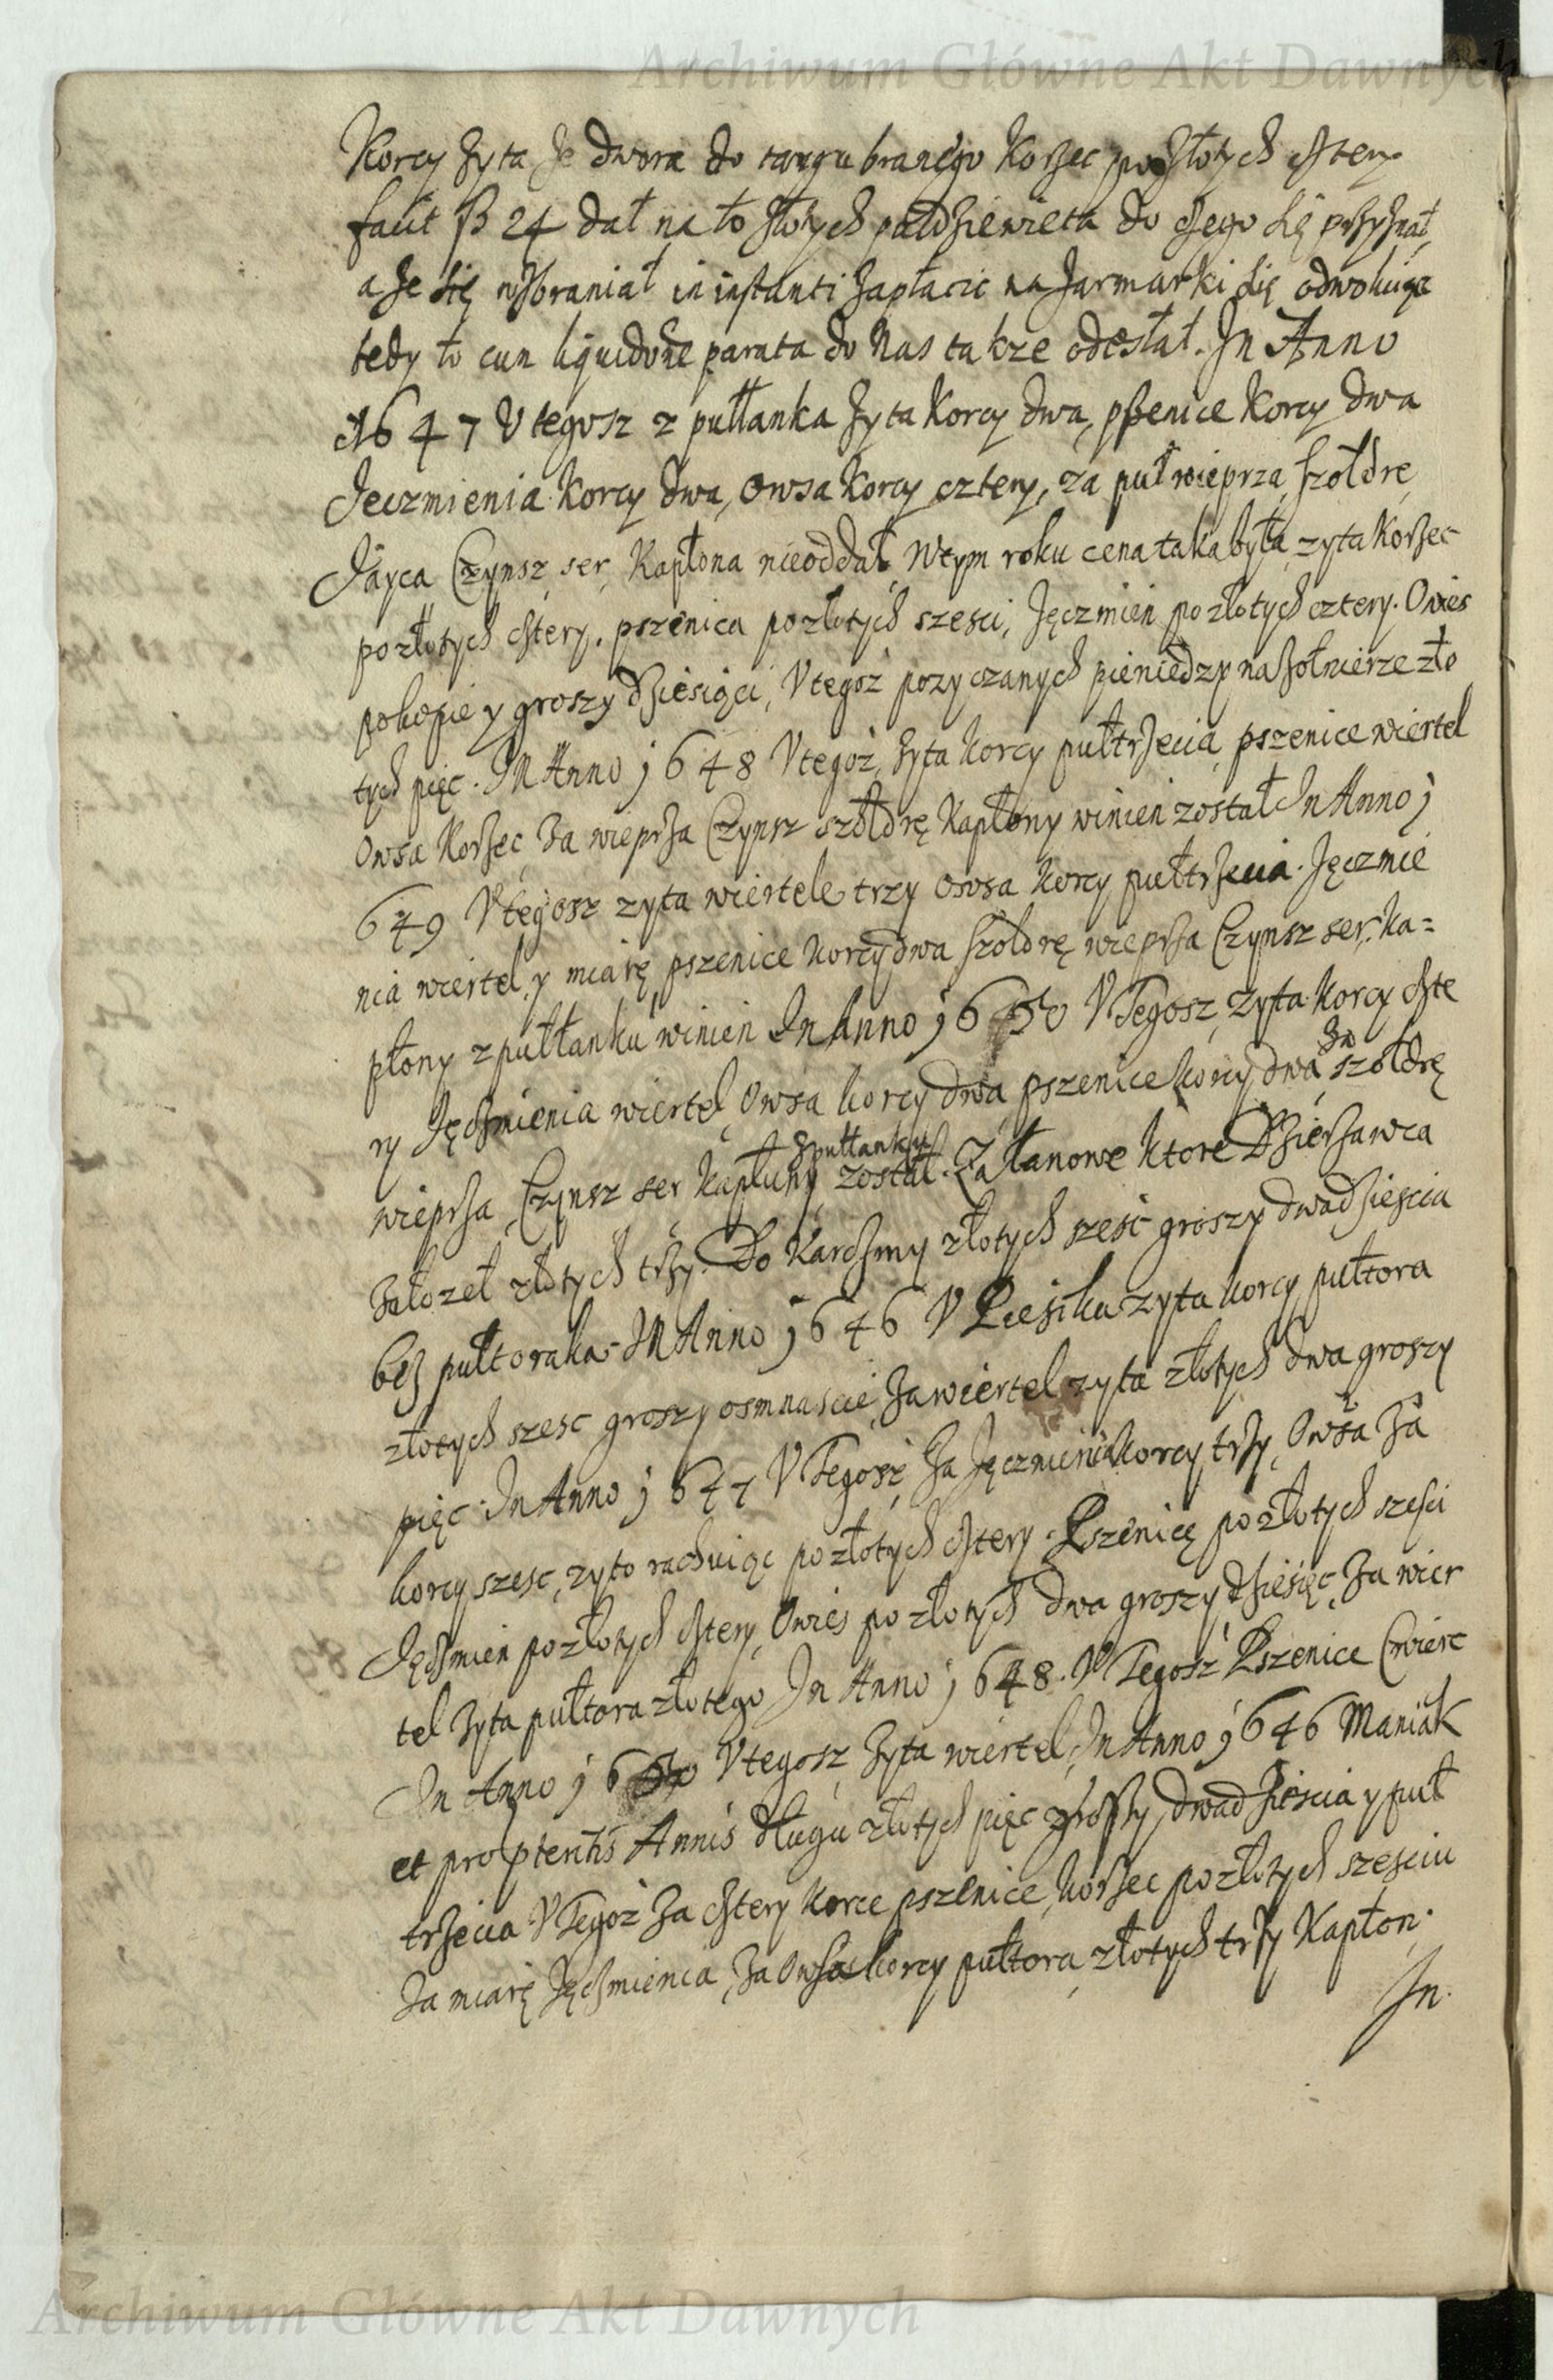 Archiwum Główne Akt Dawnych
Korcy zyta ze dwora do targu branego Korzec po złotych cztery
facit ß 24 dał na to złotych pułdziewięta do czego się przyznał,
a ze się wzbraniał in instanti zapłacic na Jarmarki się odwołuiąc
tedy to cun liquidone parata do Nas takze odesłał. In Anno
1647 V tegosz z pułłanka zyta Korcy dwa, pszenice Korcy dwa
Jeczmienia Korcy dwa, owsa Korcy cztery, za puł wieprza, szołdrę,
Jayca Czynsz, ser, Kapłona nieoddał, Wtym roku cena taka była, zyta Korzec
po złotych cztery, pszenica po złotych szesci, Jęczmien po złotych cztery. Owies
po kopie y groszy dziesiąci, V tegoz pozyczanych pieniedzy na zołnierze zło
tych pięc. IN Anno j648 V tegoz, zyta Korcy pułtrzecia, pszenice wiertel
Owsa Korzec, za wieprza Czynsz szołdrę Kapłony winien został In Anno j
649 V tegosz zyta wiertele trzy owsa Korcy pułtrzecia. Jęczmie
nia wiertel, y miarę, pszenice korcy dwa szołdrę wieprza Czynsz ser, Ka=
płony z pułłanku winien In Anno j650 V Tegosz, zyta Korcy czte
ry Jęczmienia wiertel, Owsa korcy dwa, pszenice korcy dwa, za szołdrę
wieprza, Czynsz ser Kapłuny, z pułłanku został. Za łanowe ktore Dzierzawca
załozeł złotych trzy. Do Karczmy złotych szesc groszy dwadziescia
bez pułtoraka. IN Anno j646 V Piesika zyta korcy pułtora
złotych szesc groszy osmnascie, za wiertel zyta złotych dwa groszy
pięc. In Anno j647 V Tegosz, za Jęczmienia korcy trzy, Owsa za
korcy szesc, zyto rachuiąc po złotych cztery. Pszenicę po złotych szesci
Jęczmien po złotych cztery, Owies po złotych dwa groszy dziesięc, za wier
tel zyta pułtora złotego In Anno j648. V Tegosz Pszenice Cwierc
In Anno j650 V tegosz, zyta wiertel, In Anno j646 Maniak
et pro ptentis Annis długu złotych pięc groszy dwadziescia y puł
trzecia V Tegoz za cztery korce pszenice, korzec po złotych szesciu
za miarę Jęczmienia, za Owsa korcy pułtora, złotych trzy Kapłon.
In.
Archiwum Główne Akt Dawnych